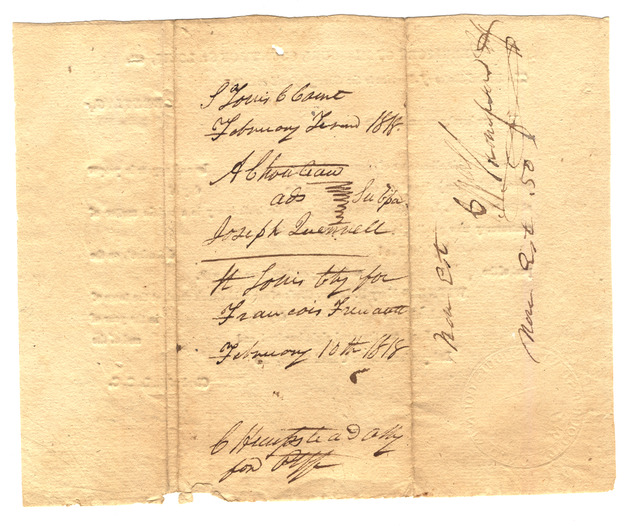 S Louis C Court
February Term 1818.
A Chouteau
ads } Subpa.
Joseph Quennell
St Louis Cty for
Francois
February 10th 1818
C Hempstead atty
for Plff
Non Est
Non Est .50